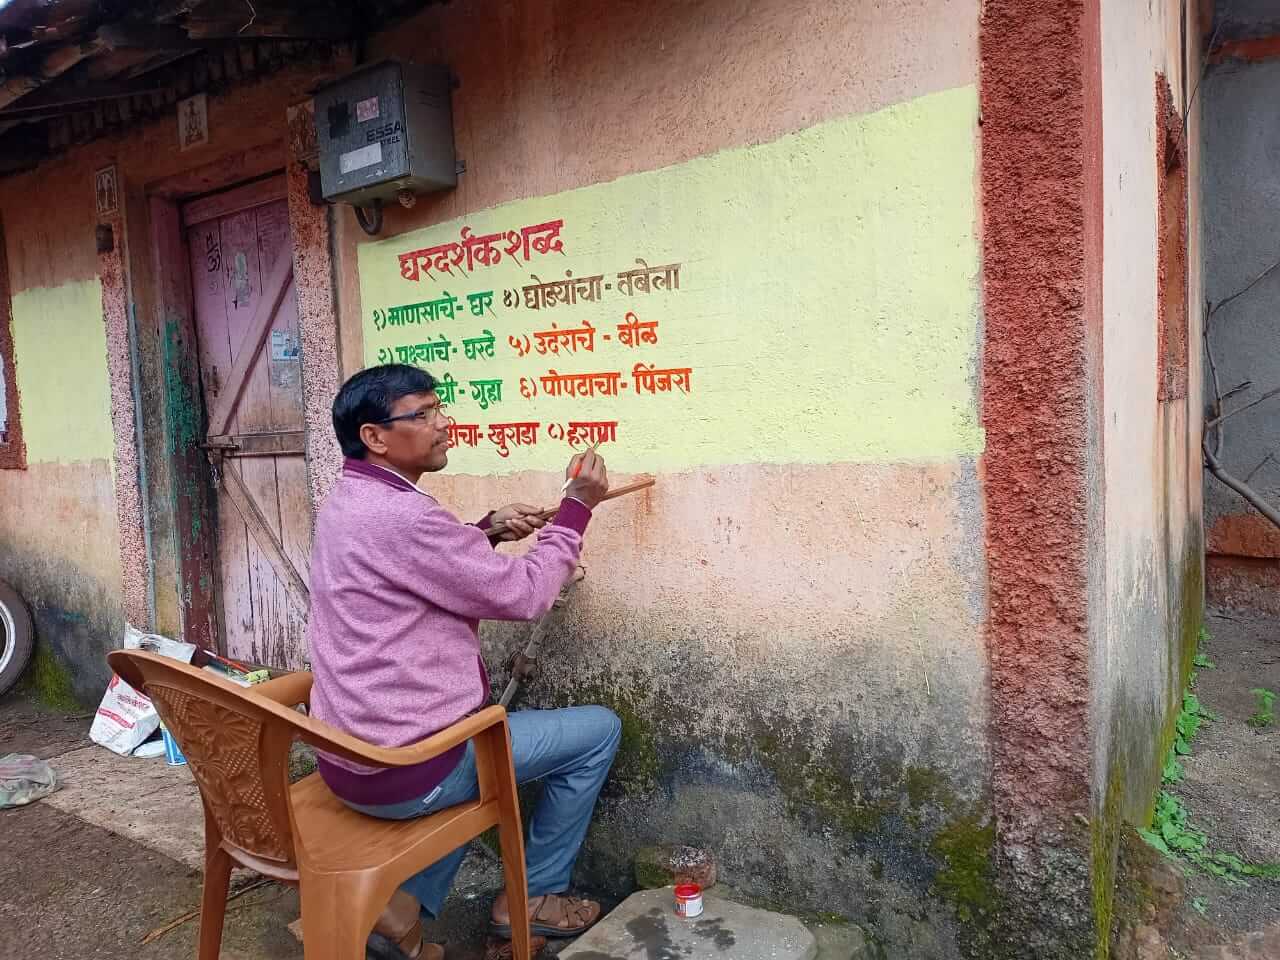 ESSA
STEEL
घरदर्शकशब्द
१) माणसाचे - घर ४) घोड्यांचा - तबेला
२) पक्ष्यांचे - घरटे ५) उदंराचे - बीळ
ची - गुहा ६) पोपटाचा - पिंजरा
चा - खुराडा ८) हराण